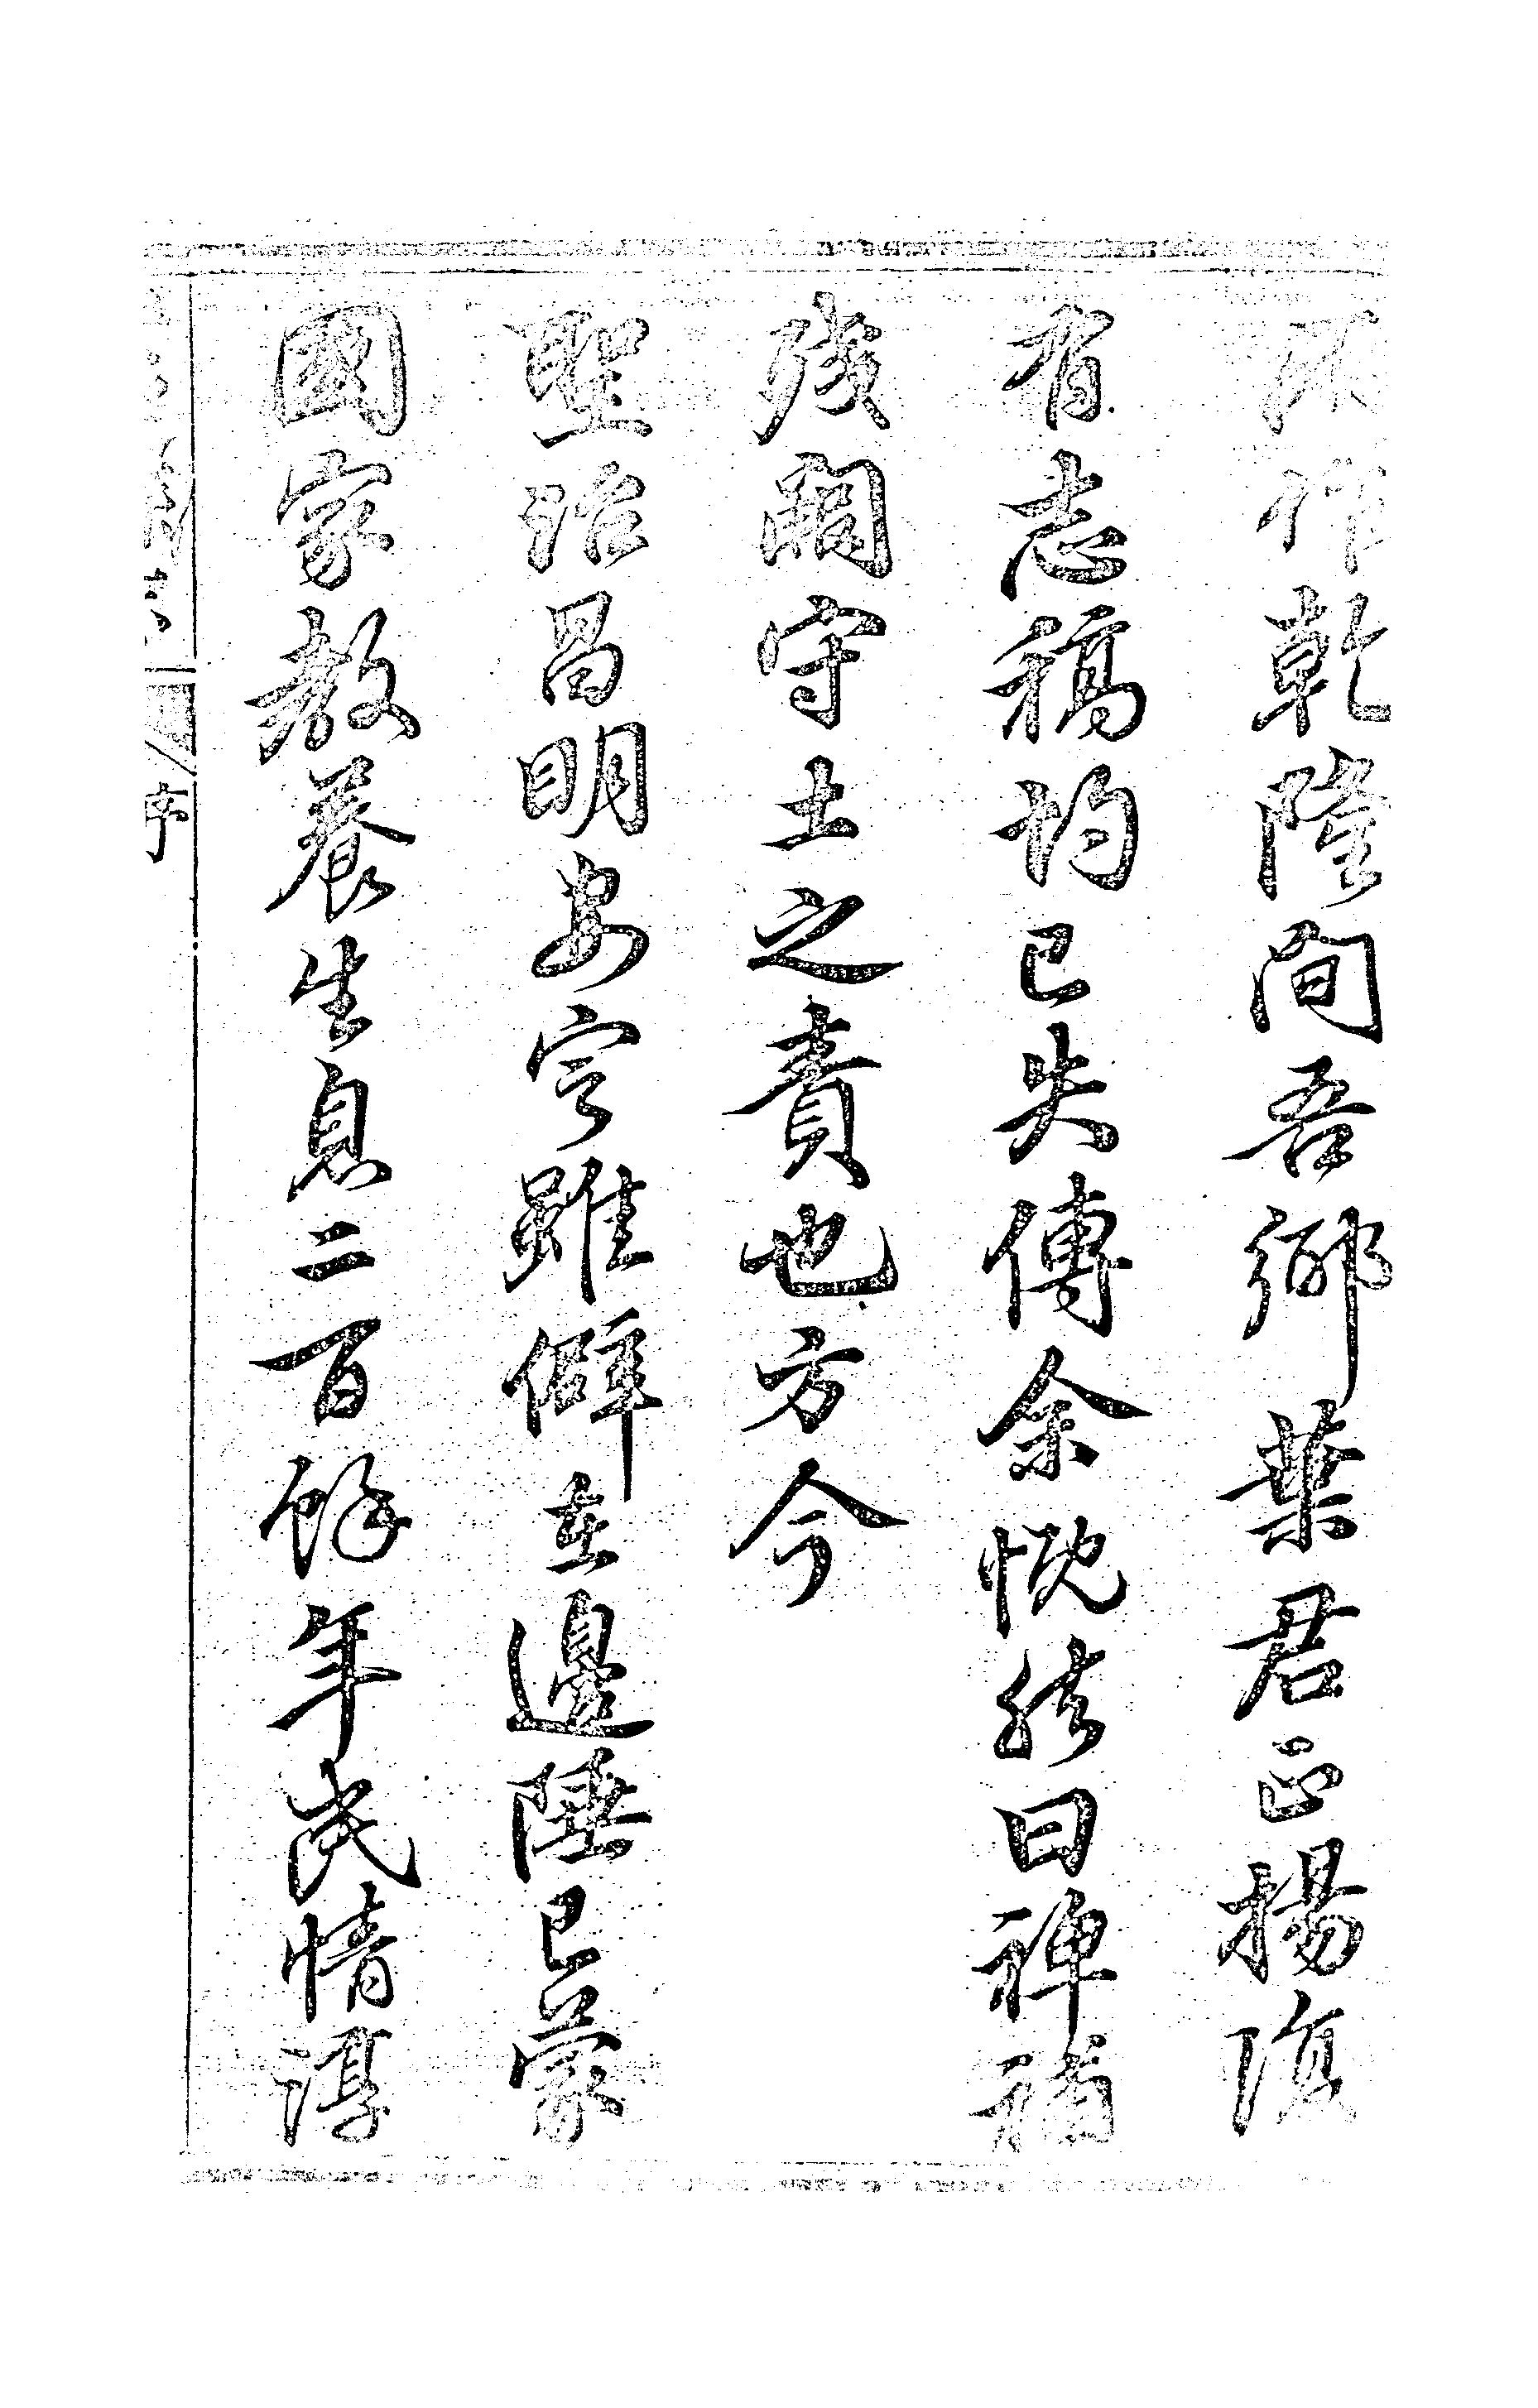 作乾隆間吾鄉葉君正揚復
有志稿均已失傳余慨然曰禆補
殘闕守土之責也方今
聖治昌明安寧雖僻在邊陲已蒙
國家教養生息二百餘年民情淳
序